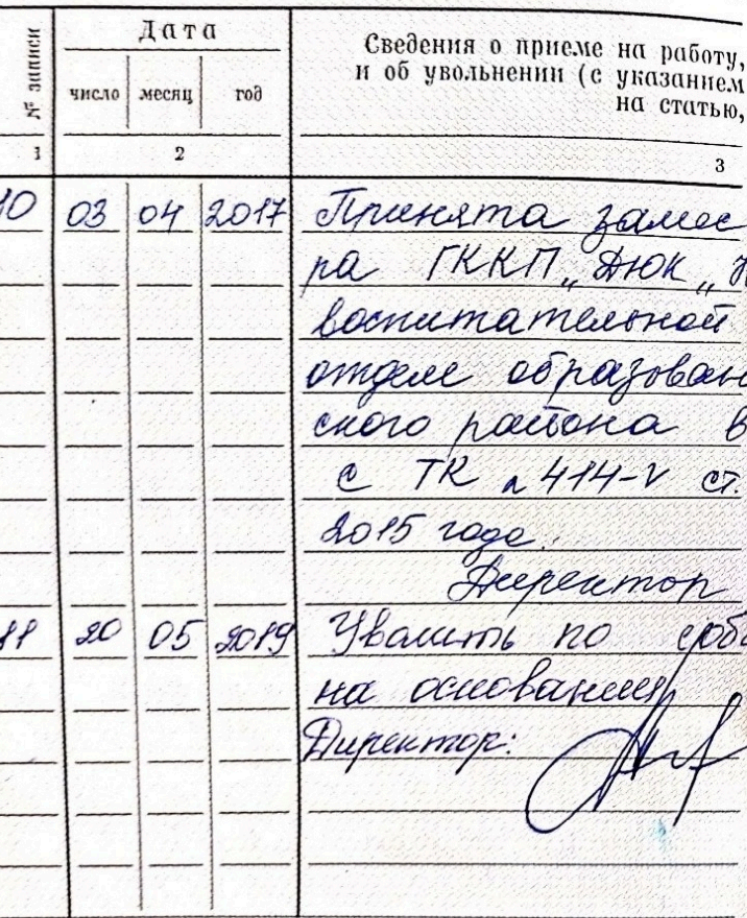 № записи
Дата
число месяц год
Сведения о приеме на работу,
и об увольнении (с указанием
на статью,
1 2 3
10 03 04 2017 Принята замес
ра ГККП „ДЮК „
воспитательной
отделе образован
ского района в
с ТК 414-V ст.
2015 года.
Директор
11 20 05 2019 Уволить по собс
на основании
Директор: